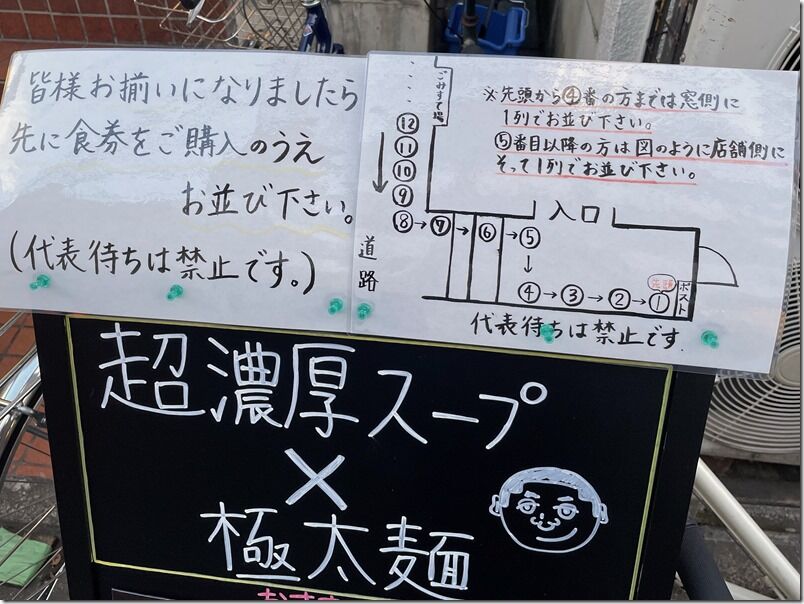 皆様お揃いになりましたら
先に食券をご購入のうえ
お並び下さい。
(代表待ちは禁止です。)
ごみすて場
※先頭から④番の方までは窓側に
1列でお並び下さい。
⑤番目以降の方は図のように店舗側に
そって1列でお並び下さい。
⑫
⑪
⑩
⑨
⑧→⑦→⑥→⑤
入口
道路
↓
④→③→②→①
先頭
ポスト
代表待ちは禁止です.
超濃厚スープ
×
極太麺